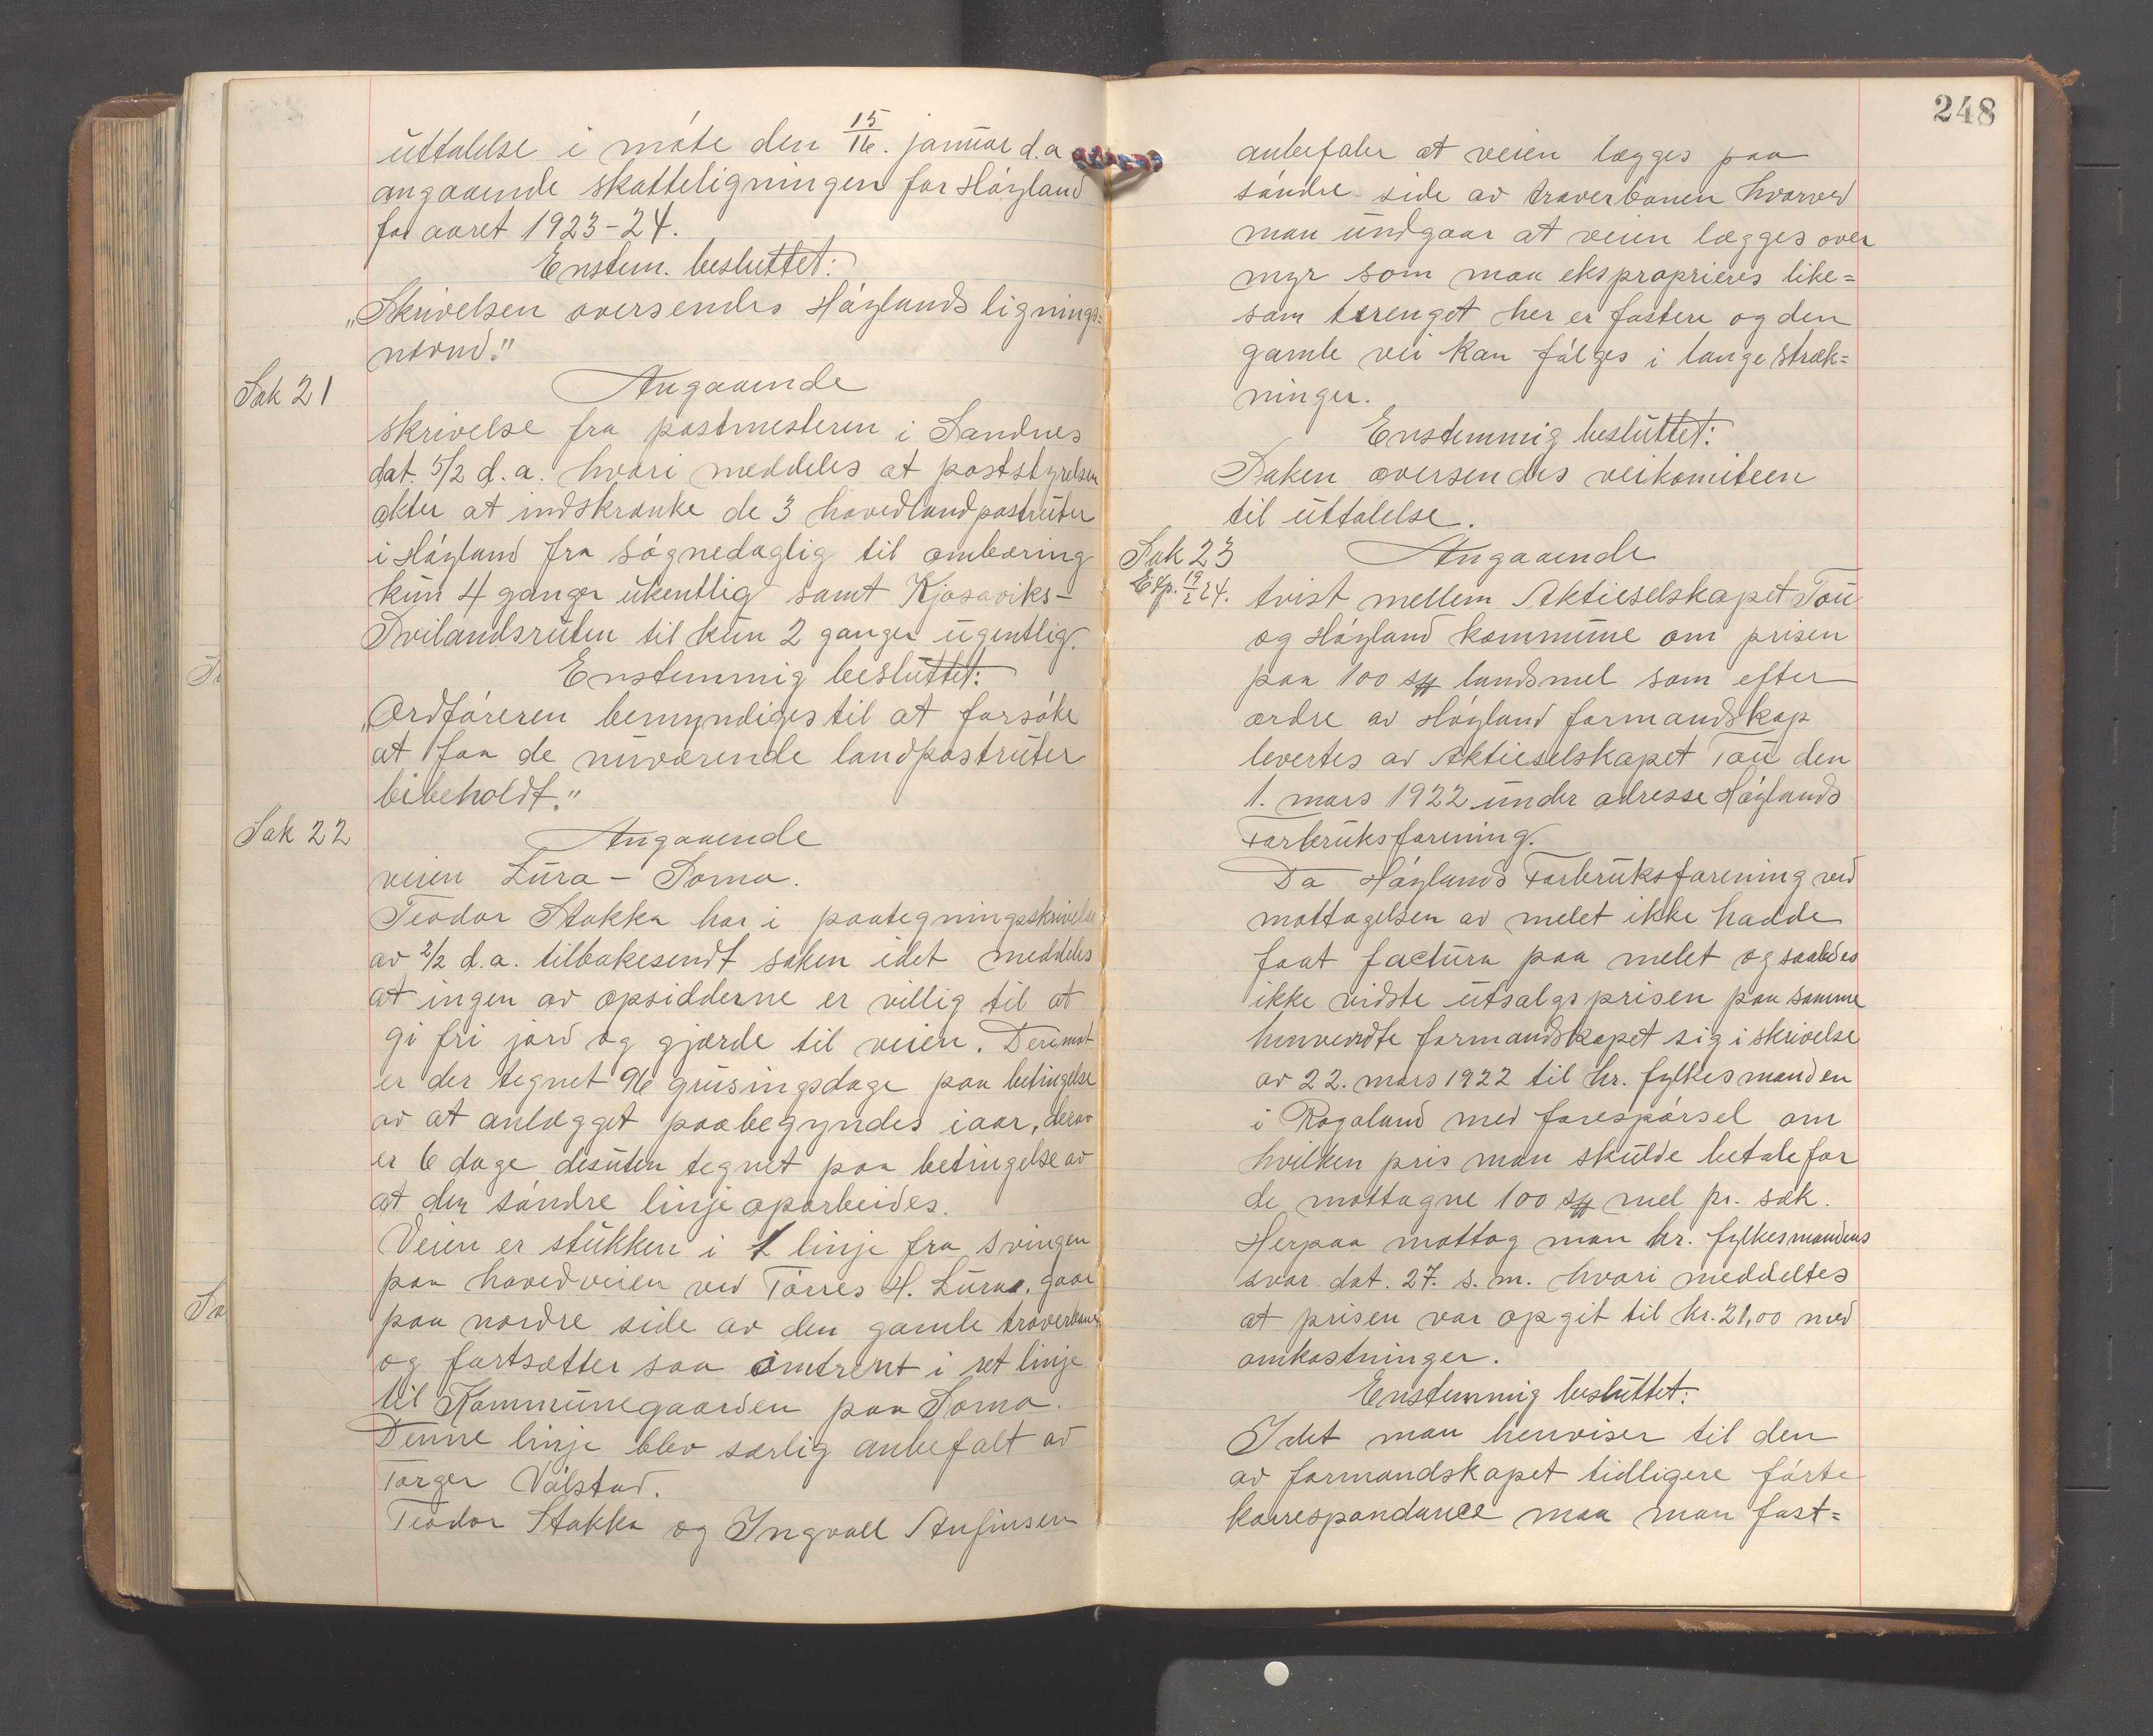 uttalelse i móte den 15/16. januar d.a
angaaende skatteligningen for Hóyland
for aaret 1923-24.
Enstem. besluttet:
„Skrivelsen oversendes Hóylands lignings=
nævnd."
Sak 21
Angaaende
skrivelse fra postmesteren i Sandnes
dat. 5/2 d.a. hvori meddeles at poststyrelsen
akter at indskrænke de 3 hovedlandpostruter
i Hóyland fra sógnedaglig til ombæring
kun 4 ganger ukentlig samt Kjosaviks-
Svilandsruten til kun 2 ganger ugentlig.
Enstemmig besluttet:
„Ordfóreren bemyndiges til at forsóke
at faa de nuværende landpostruter
bibeholdt."
Sak 22
Angaaende
veien Lura - Soma.
Teodor Stokka har i paategningsskrivelse
av 2/2 d.a. tilbakesendt saken idet meddeles
at ingen av opsidderne er villig til at
gi fri jord og gjærde til veien. Derimot
er der tegnet 96 grusingsdage paa betingelse
av at anlægget paabegyndes iaar, derav
er 6 dage desuten tegnet paa betingelse av
at den sóndre linje oparbeides.
Veien er stukken i 1 linje fra svingen
paa hovedveien ved Tórres H. Lura, gaar
paa nordre side av den gamle traverbane
og fortsætter saa omtrent i ret linje
til Kommunegaarden paa Soma.
Denne linje blev særlig anbefalt av
Torger Vólstad.
Teodor Stokka og Ingvall Anfinsen
248
anbefaler at veien lægges paa
sóndre side av traverbanen hvorved
man undgaar at veien lægges over
myr som maa eksproprieres like=
som terænget her er fastere og den
gamle vei kan fólges i lange stræk=
ninger.
Enstemmig besluttet:
Saken oversendes veikomiteen
til uttalelse.
Sak 23
Angaaende
Exp. 19/2 24.
tvist mellem Aktieselskapet Tou
og Hóyland kommune om prisen
paa 100 sk landsmel som efter
ordre av Hóyland formandskap
levertes av Aktieselskapet Tou den
1. mars 1922 under adresse Hóylands
Forbruksforening.
Da Hóylands Forbruksforening ved
mottagelsen av melet ikke hadde
faat factura paa melet og saaledes
ikke vidste utsalgsprisen paa samme
henvendte formandskapet sig i skrivelse
av 22. mars 1922 til hr. fylkesmanden
i Rogaland med forespórsel om
hvilken pris man skulde betale for
de mottagne 100 sk mel pr. sæk.
Herpaa mottog man hr. fylkesmandens
svar dat. 27. s.m. hvori meddeltes
at prisen var opgit til kr. 21,00 med
omkostninger.
Enstemmig besluttet:
Idet man henviser til den
av formandskapet tidligere fórte
korrespondance maa man fast=